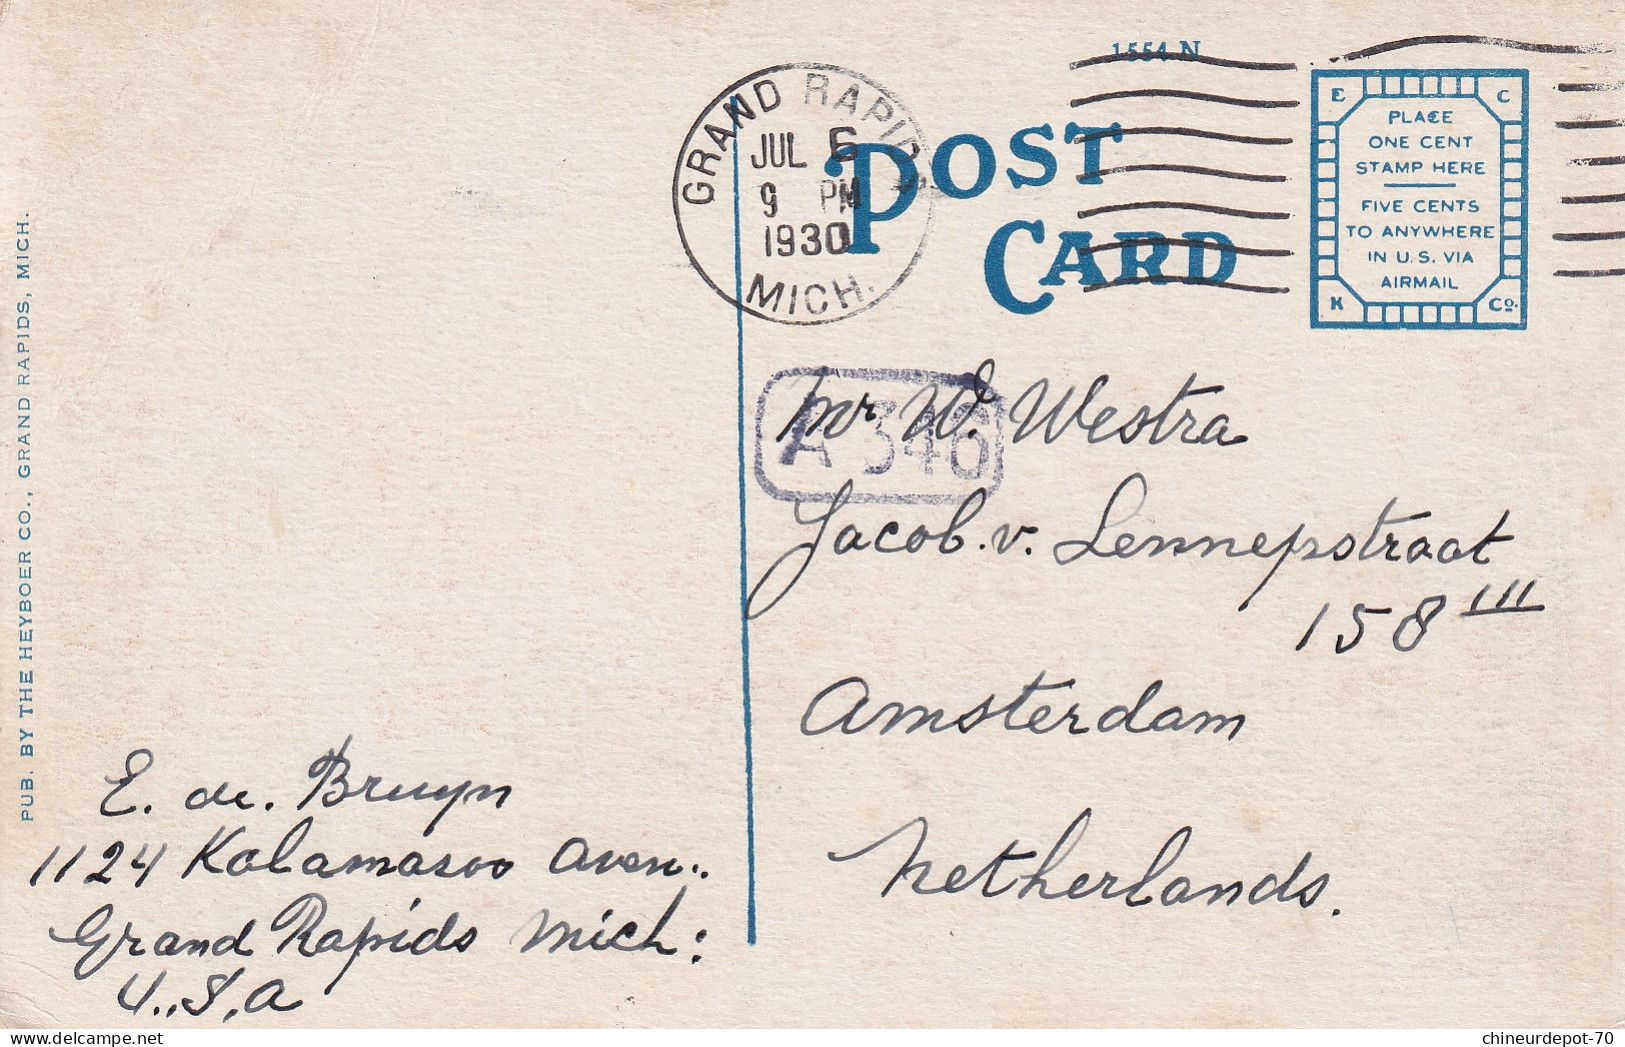 1554 N
GRAND RAPIDS
JUL 6
9 PM
1930
MICH.
POST
CARD
E C
PLACE
ONE CENT
STAMP HERE
FIVE CENTS
TO ANYWHERE
IN U.S. VIA
AIRMAIL
K Co.
A 346
Mr W. Westra
Jacob. v. Lennepstraat
158 III
Amsterdam
Netherlands.
PUB. BY THE HEYBOER CO., GRAND RAPIDS, MICH.
E. de. Bruyn
1124 Kalamasoo Aven..
Grand Rapids Mich:
U..S.A
chineurdepot-70